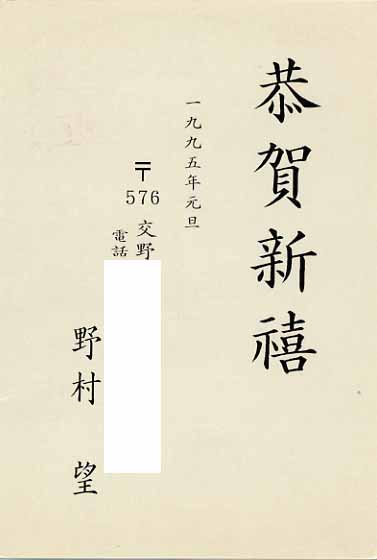 恭賀新禧
一九九五年元旦
〒576
交野
電話
野村 望